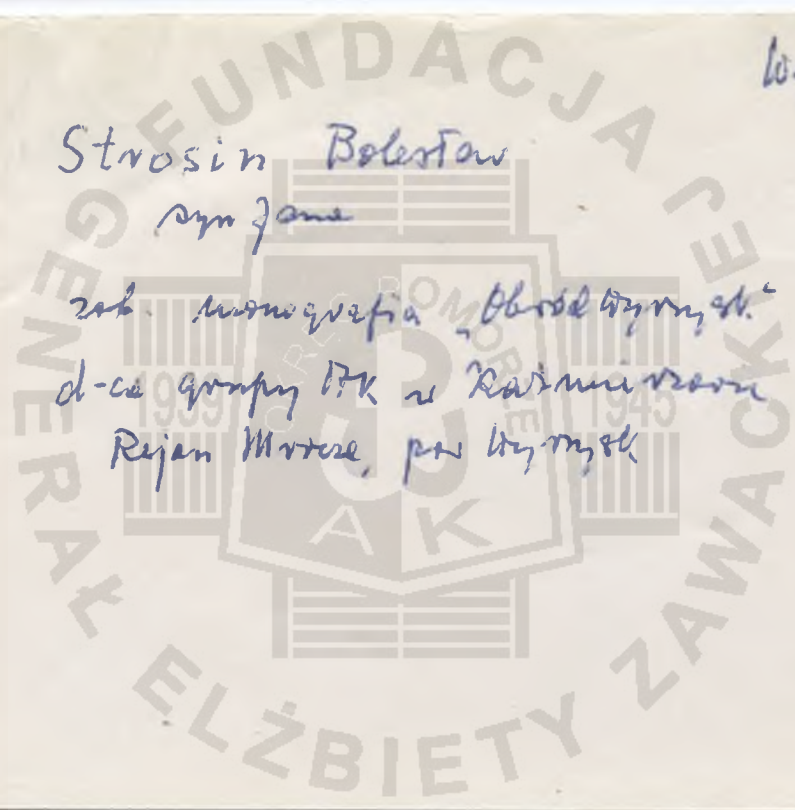 Strosin Bolesław
syn Jana
zob. monografia „Obwód Wyrzysk"
d-ca grupy AK w Kaźmierzewie
Rejon Mrocza, pow Wyrzysk
FUNDACJA GENERAŁ ELŻBIETY ZAWACKIEJ
OKRĘG POMORZE
1939 1945
AK